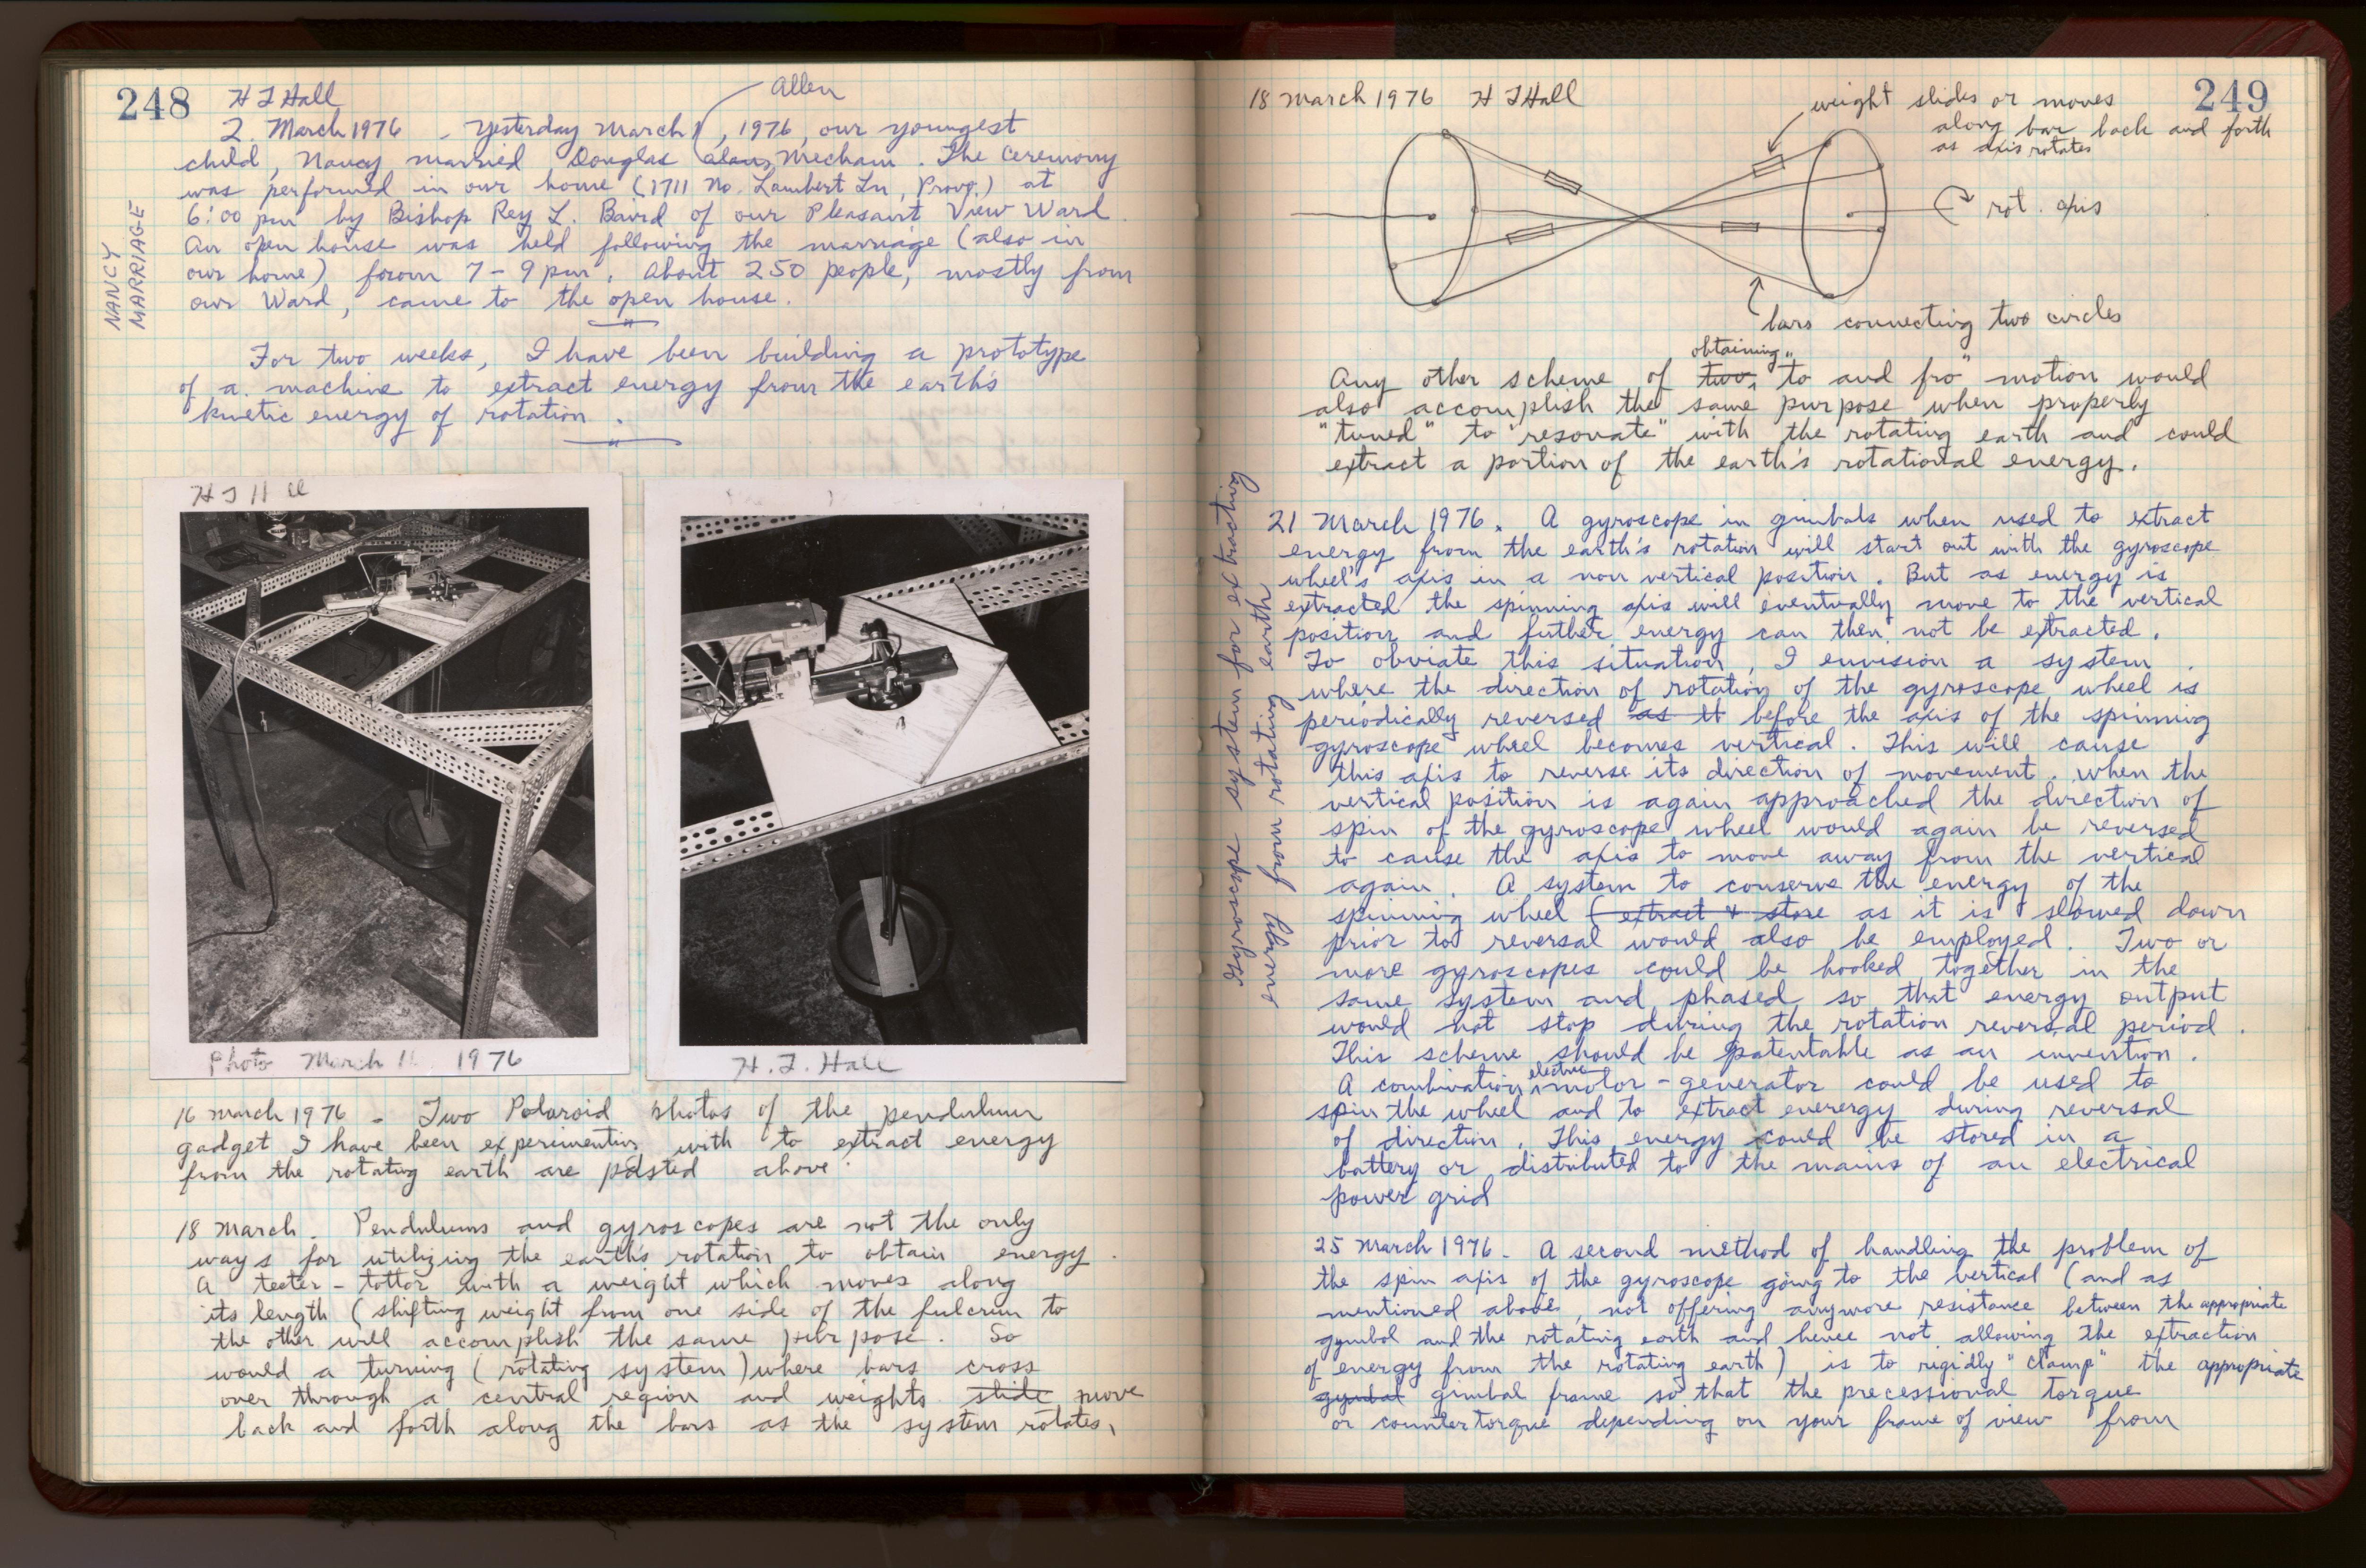 248 H T Hall
Allen
2. March 1976 - Yesterday March 1, 1976, our youngest
child, Nancy married Douglas alan, Mecham. The ceremony
was performed in our home (1711 No. Lambert Ln, Provo.) at
6:00 pm by Bishop Rey L. Baird of our Pleasant View Ward.
An open house was held following the marriage (also in
our home) forom 7-9 pm. About 250 people, mostly from
our Ward, came to the open house.
NANCY
MARRIAGE
For two weeks, I have been building a prototype
of a machine to extract energy from the earth's
kinetic energy of rotation.
H T Hall
Photo March 11 1976
H. T. Hall
16 March 1976 - Two Polaroid photos of the pendulum
gadget I have been experimenting with to extract energy
from the rotating earth are pasted above.
18 March. Pendulums and gyroscopes are not the only
ways for utilizing the earth's rotation to obtain energy.
A teeter-tottor with a weight which moves along
its length (shifting weight from one side of the fulcrum to
the other will accomplish the same purpose. So
would a turning (rotating system) where bars cross
over through a central region and weights slide move
back and forth along the bars as the system rotates,
18 March 1976 H T Hall
249
weight slides or moves
along bar back and forth
as axis rotates
rot. axis
bars connecting two circles
obtaining
Any other scheme of two, "to and fro" motion would
also accomplish the same purpose when properly
"tuned" to "resonate" with the rotating earth and could
extract a portion of the earth's rotational energy.
Gyroscope system for extracting
energy from rotating earth
21 March 1976. A gyroscope in gimbals when used to extract
energy from the earth's rotation will start out with the gyroscope
wheel's axis in a non vertical position. But as energy is
extracted the spinning axis will eventually move to the vertical
position and futher energy can then not be extracted.
To obviate this situation, I envision a system
where the direction of rotation of the gyroscope wheel is
periodically reversed as it before the axis of the spinning
gyroscope wheel becomes vertical. This will cause
this axis to reverse its direction of movement. When the
vertical position is again approached the direction of
spin of the gyroscope wheel would again be reversed
to cause the axis to move away from the vertical
again. A system to conserve the energy of the
spinning wheel (extract & store as it is slowed down
prior to reversal would also be employed. Two or
more gyroscopes could be hooked together in the
same system and phased so that energy output
would not stop during the rotation reversal period.
This scheme should be patentable as an invention.
electric
A combination motor-generator could be used to
spin the wheel and to extract enerergy during reversal
of direction. This energy could be stored in a
battery or distributed to the mains of an electrical
power grid
25 March 1976 - A second method of handling the problem of
the spin axis of the gyroscope going to the vertical (and as
mentioned above, not offering anymore resistance between the appropriate
gymbol and the rotating earth and hence not allowing the extraction
of energy from the rotating earth) is to rigidly "clamp" the appropriate
gymbal gimbal frame so that the precessional torque
or countertorque depending on your frame of view from